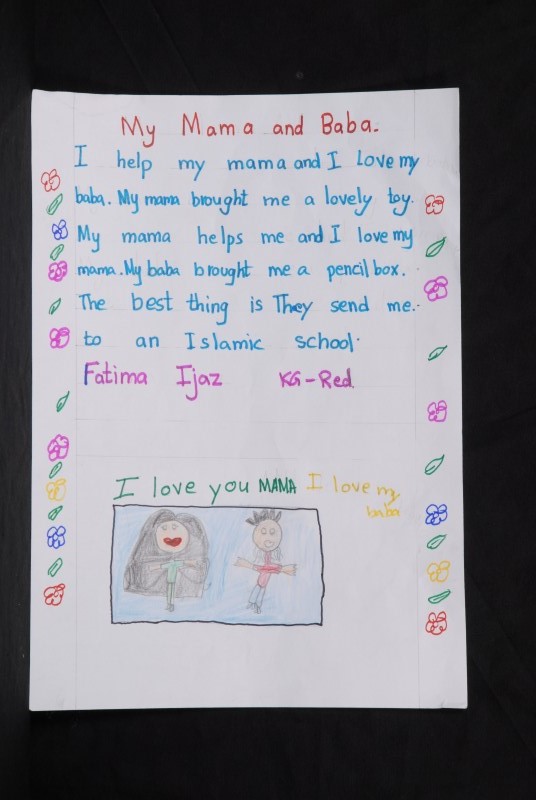 My Mama and Baba.
I help my mama and I love my
baba. My mama brought me a lovely toy.
My mama helps me and I love my
mama. My baba brought me a pencil box.
The best thing is They send me.
to an Islamic school.
Fatima Ijaz KG-Red
I love you MAMA I love my
baba